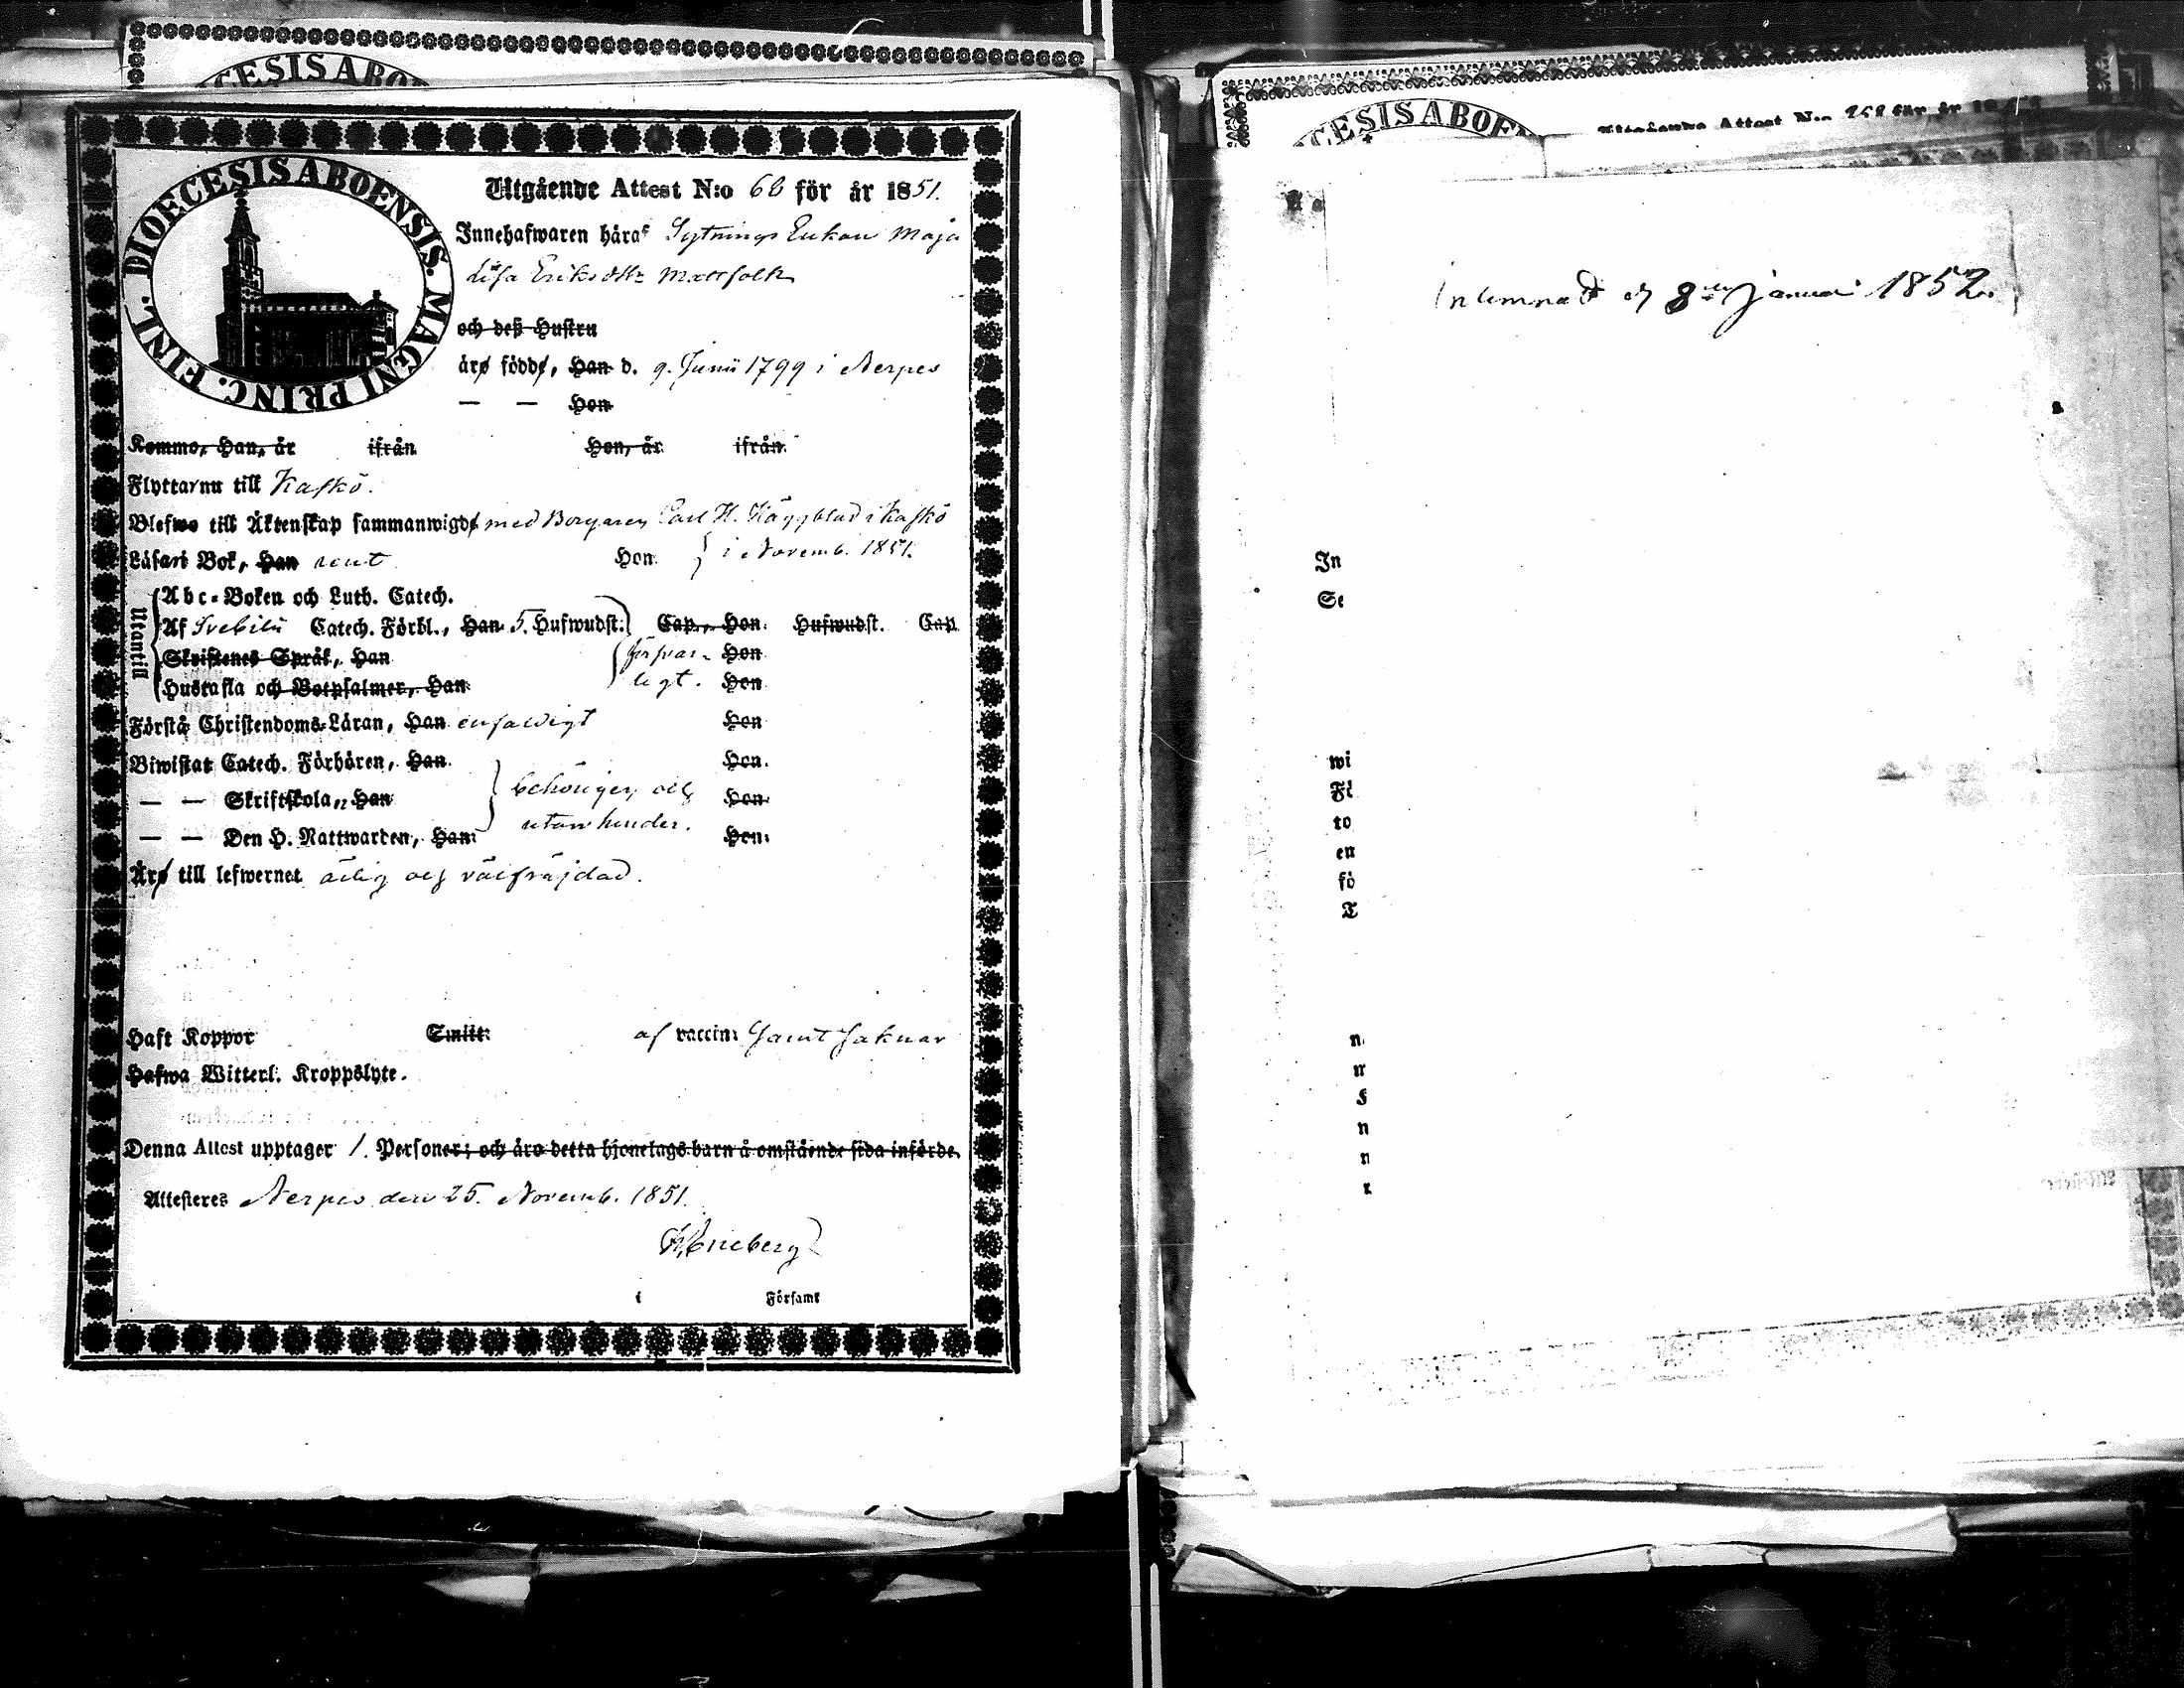 CESIS ABOE
DIOECESIS ABOENSIS. MAGNI PRINC. FINL.
Utgående Attest N:o 66 för år 1851.
Innehafwaren häraf Sytnings Enkan Maja
Lisa Eriksdtr Mattfolk
och deß Hustru
äro födde, Han d. 9. Junii 1799 i Nerpes
— — Hon
Kommo, Han, år ifrån Hon, år ifrån
Flyttar nu till Kaskö.
Blefwo till Äktenskap sammanwigde med Borgaren Carl H. Häggblad i Kaskö
Läsa i Bok, Han rent Hon } i Novemb. 1851.
Utantill
Abc-Boken och Luth. Catech.
Af Svebilii Catech. Förkl., Han 5. Hufwudst. Cap., Hon Hufwudst. Cap
Skriftenes Språk, Han försvar- Hon
Hustafla och Botpsalmer, Han ligt. Hon
Förstå Christendoms-Läran, Han enfaldigt Hon
Biwistat Catech. Förhören, Han Hon.
— — Skriftskola, Han behörigen och Hon
— — Den H. Nattwarden, Han utan hinder. Hon.
Äro till lefwernet ärlig och välfräjdad.
Haft Koppor Smitt. af vaccin. samt saknar
Hafwa Witterl. Kroppslyte.
Denna Attest upptager 1. Personer; och äro detta hjonelags barn å omstående sida införde.
Attesteres Nerpes den 25. Novemb. 1851.
i Församl
CESIS ABOE
Utgående Attest N:o 268 för år 18
Inlemnad d 8de Januari 1852.
In
Se
wi
Fö
to
en
fö
T
n
n
n